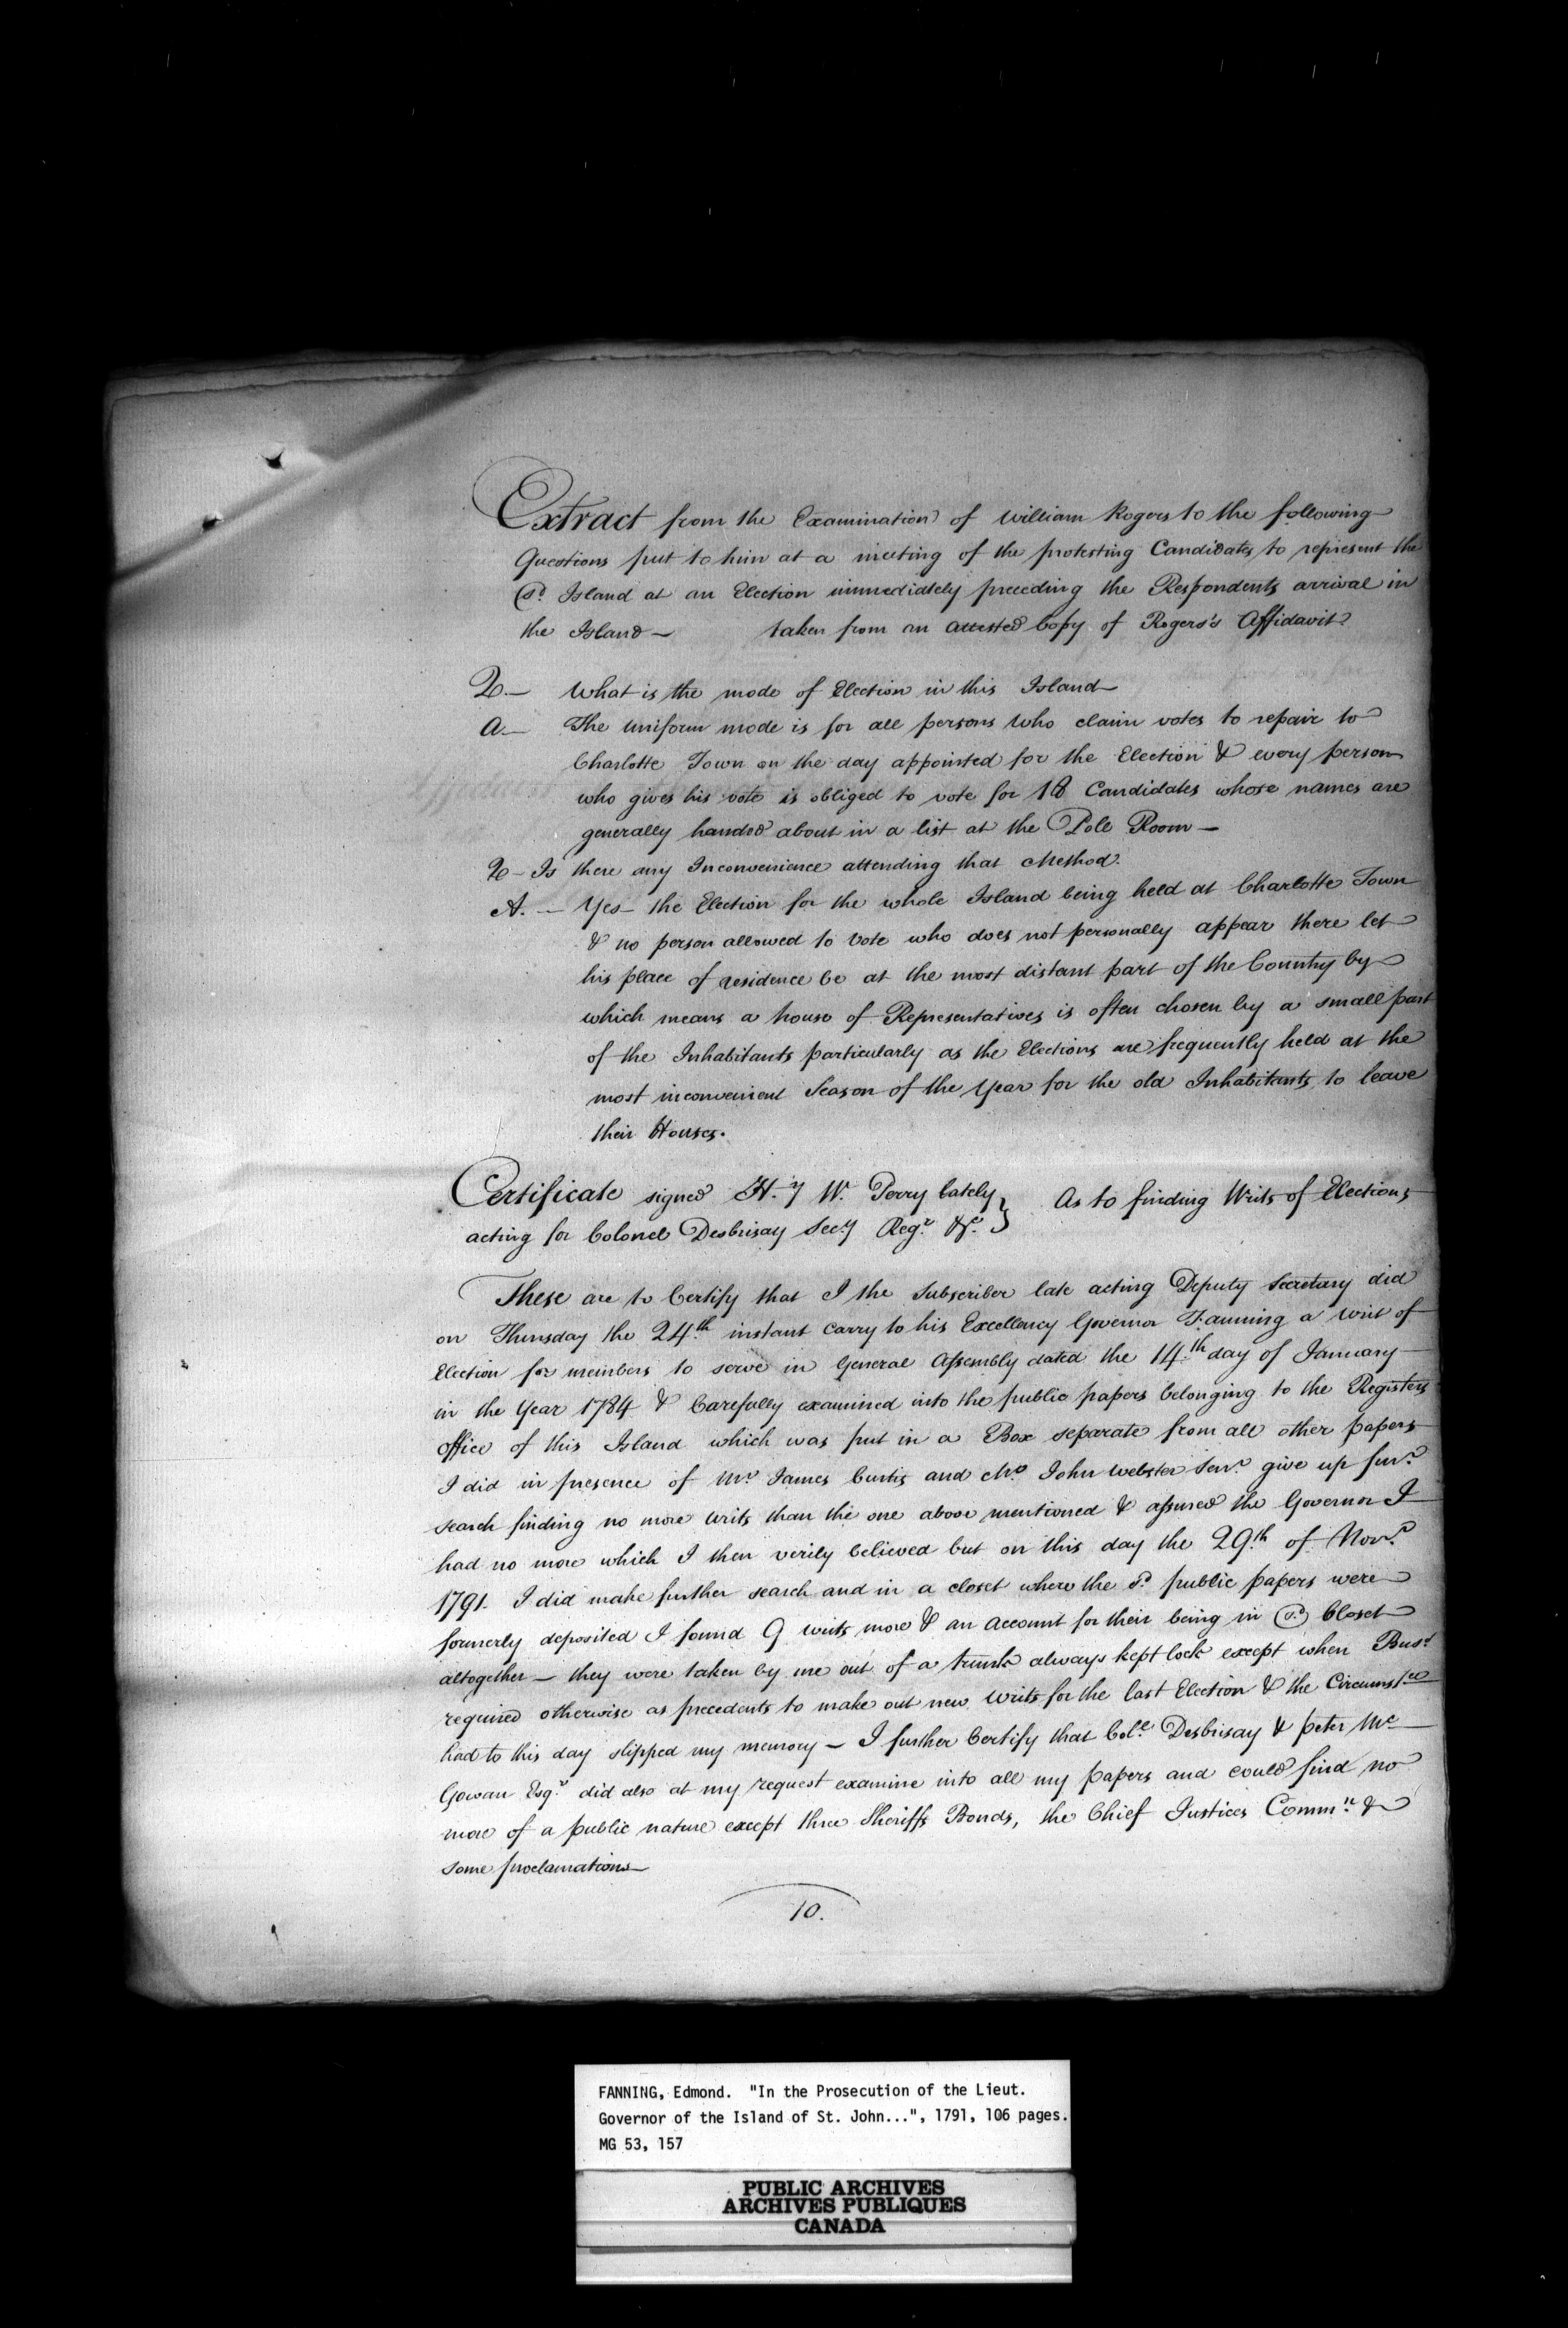 Extract from the Examination of William Rogers to the following
Questions put to him at a meeting of the protesting Candidates to represent the
(sd. Island at an Election immediately preceding the Respondents arrival in
the Island — taken from an attested Copy of Rogers's Affidavit
Q. — What is the mode of Election in this Island —
A. — The uniform mode is for all persons who claim votes to repair to
Charlotte Town on the day appointed for the Election & every person
who gives his vote is obliged to vote for 18 Candidates whose names are
generally handed about in a list at the Pole Room —
Q — Is there any Inconvenience attending that Method.
A. — Yes — the Election for the whole Island being held at Charlotte Town
& no person allowed to vote who does not personally appear there let
his place of residence be at the most distant part of the Country by
which means a house of Representatives is often chosen by a small part
of the Inhabitants particularly as the Elections are frequently held at the
most inconvenient Season of the Year for the old Inhabitants to leave
their Houses.
Certificate signed H.y W. Perry lately } As to finding Writs of Elections
acting for Colonel Desbrisay Secy. Regr. &c.
These are to Certify that I the Subscriber late acting Deputy Secretary did
on Thursday the 24th. instant carry to his Excellency Governor Fanning a writ of
Election for members to serve in General Assembly dated the 14th. day of January
in the Year 1784 & Carefully examined into the public papers belonging to the Registers
office of this Island which was put in a Box separate from all other papers
I did in presence of Mr. James Curtis and Mr. John Webster Senr. give up furr.
search finding no more writs than the one above mentioned & assured the Governor I
had no more which I then verily believed but on this day the 29.th of Novr.
1791. I did make further search and in a closet where the sd. public papers were
formerly deposited I found 9 writs more & an account for their being in (sd.) Closet
altogether — they were taken by me out of a trunk always kept lock except when Buss.
required otherwise as precedents to make out new writs for the last Election & the Circumstce
had to this day slipped my memory — I further Certify that Coll. Desbrisay & peter Mc
Gowan Esqr. did also at my request examine into all my papers and could find no
more of a public nature except three Sheriffs Bonds, the Chief Justices Commn. &
some proclamations —
10.
FANNING, Edmond. "In the Prosecution of the Lieut.
Governor of the Island of St. John...", 1791, 106 pages.
MG 53, 157
PUBLIC ARCHIVES
ARCHIVES PUBLIQUES
CANADA